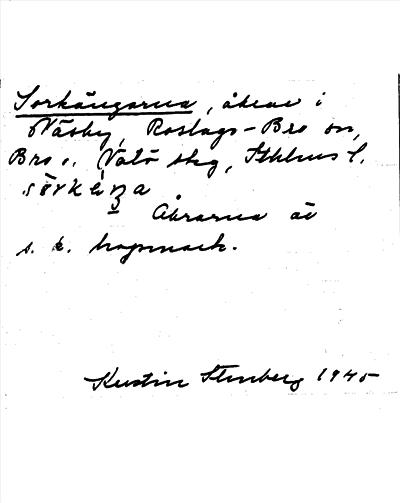 Sorkängarna, åkrar i
Näsby, Roslags-Bro sn,
Bro o. Vätö skg, Sthlms l.
Åkrarna är
s. k. hopmack.
Kerstin Stenberg 1945